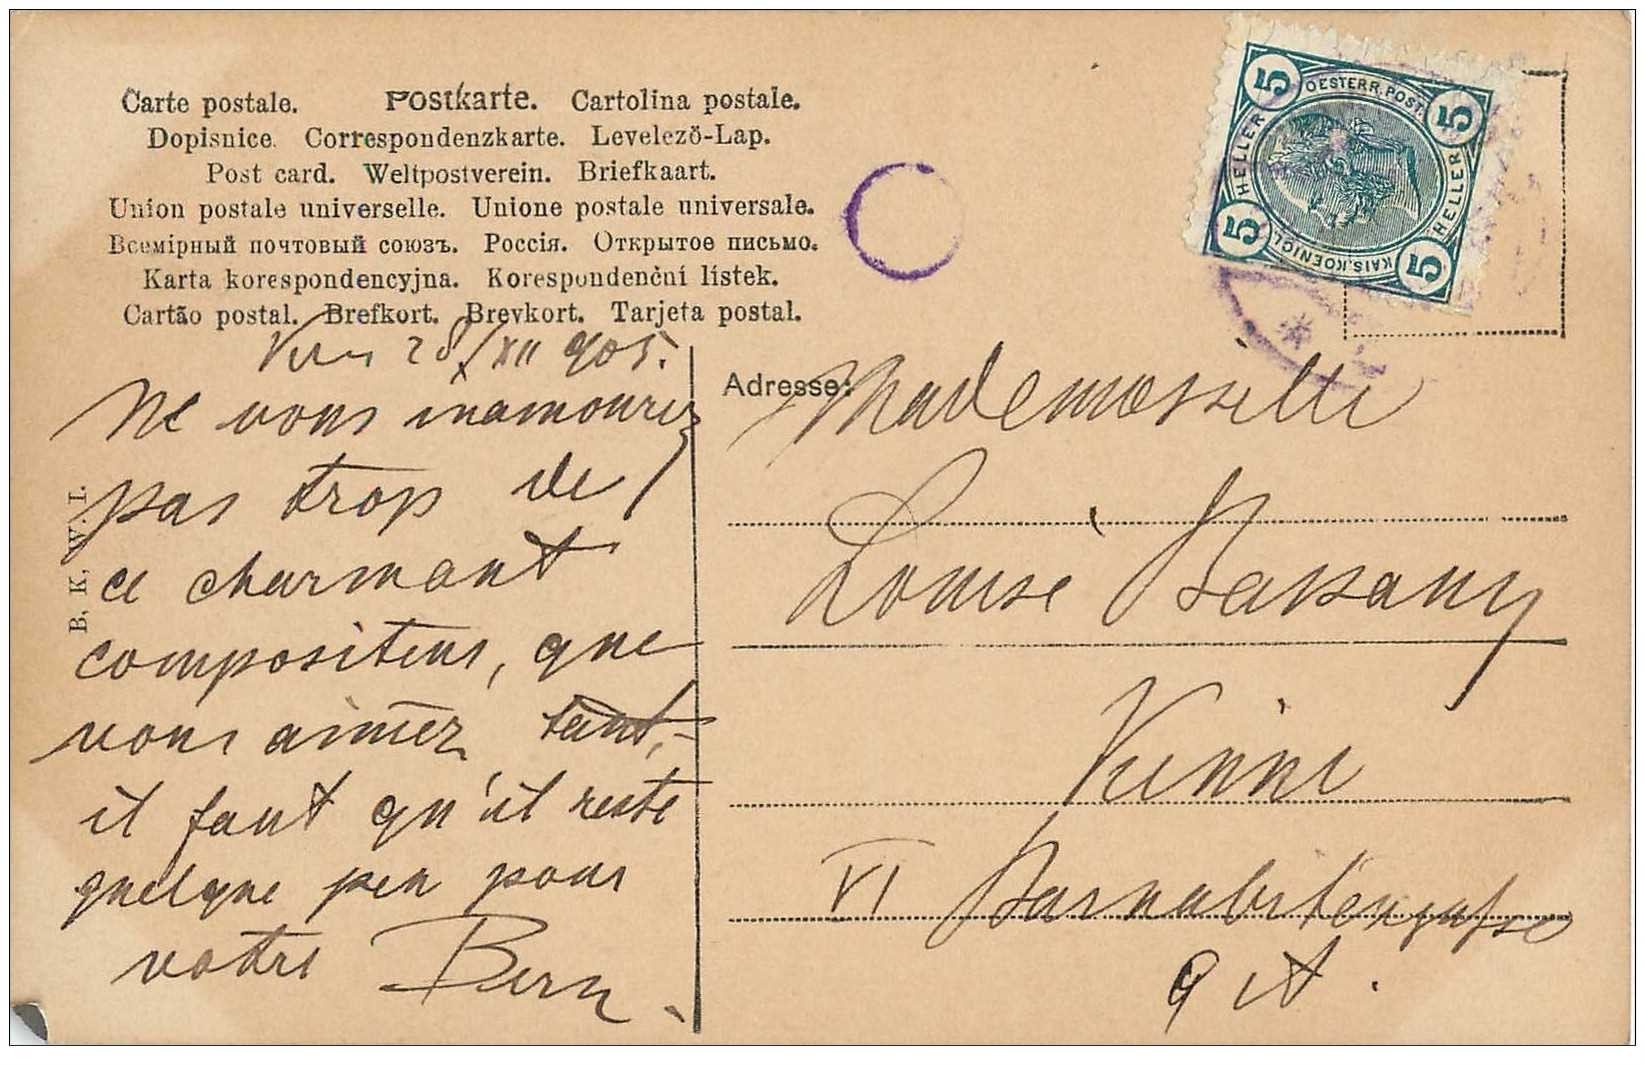 Carte postale. Postkarte. Cartolina postale.
Dopisnice. Correspondenzkarte. Levelező-Lap.
Post card. Weltpostverein. Briefkaart.
Union postale universelle. Unione postale universale.
Всемірный почтовый союзъ. Россія. Открытое письмо.
Karta korespondencyjna. Korespondenční lístek.
Cartão postal. Brefkort. Brevkort. Tarjeta postal.
28/XII 905.
Ne vous inamourez
pas trop de
ce charmant
compositeur, que
vous aimez tant,
il faut qu'il reste
quelque peu pour
votre
B. K. W. I.
5 OESTERR. POST. 5
HELLER HELLER
5 KAIS. KOENIGL. 5
Adresse:
Mademoiselle
Louise Bassany
Vienne
VI Barnabitengasse
9